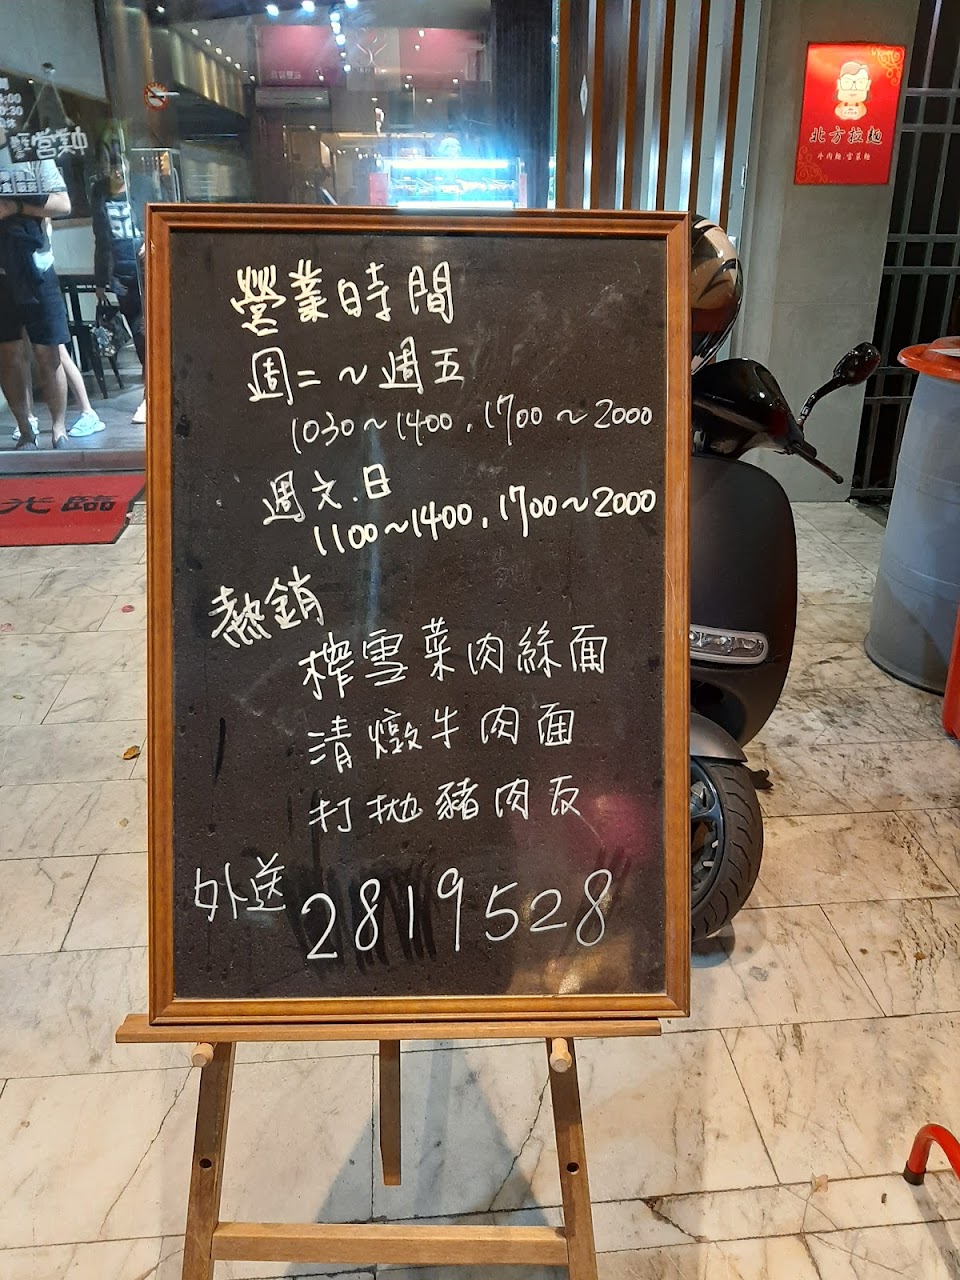 營業時間
週二～週五
1030～1400，1700～2000
週六.日
1100～1400，1700～2000
熱銷
榨雪菜肉絲面
清燉牛肉面
打拋豬肉反
外送 2819528
北方拉麵
牛肉麵.雪菜麵
營業中
光臨